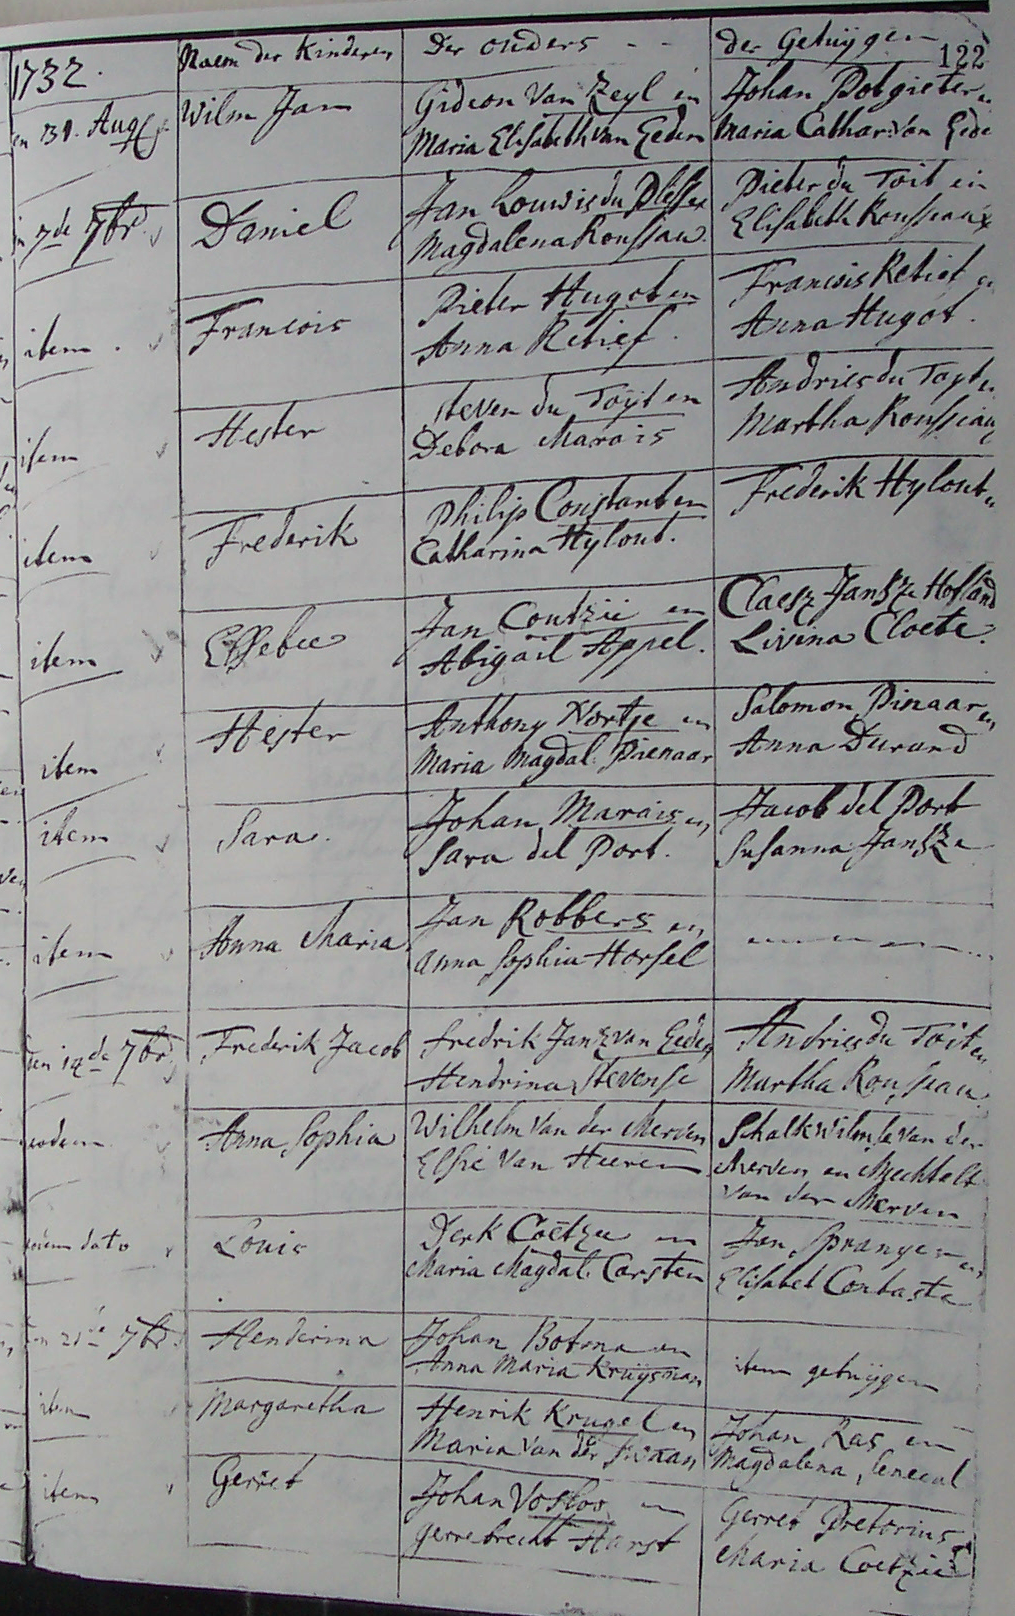 1732. Naem der Kinderen Der ouders - - der Getuijgen
122
31. Aug Wilm Jan Gideon Van Zeyl en Johan Potgieter
Maria Elisabeth van Eeden Maria Cathar: Von Eede
7de 7br. Daniel Jan Louwis du Plessx Pieter du Toit en
Magdalena Roussau. Elisabeth Rousseaux
item. Francois Pieter Hugot en Francois Retief
Anna Retief. Anna Hugot.
item Hester Steven du Toyt en Andries du Toyt
Debora Marais Martha Rousseau
item Frederik Philip Constant en Frederik Hylout
Catharina Hylout.
item Jan Coutzie en Claesz Janszn Holland
Abigail Appel. Livina Cloete.
item Hester Anthony Nortje en Salomon Pinaar en
Maria Magdal: Pienaar Anna Durand
item Sara. Johan Marais en Jacob del Port
Sara del Port. Susanna Jansze
item Anna Maria Jan Robbers en
Anna Sophia Horsel
den 14de 7br. Frederik Jacob Fredrik Janz van Eeden Andries du Toit en
Hendrina Stevense Martha Rousseau.
eodem Anna Sophia Wilhelm Van der Merven Schalk Wilmse van der
Elsie Van Heeren Merven en Mechtelt
van der Merven
eodem dato Louis Derk Coetzee en Jan Spranger en
Maria Magdal: Carsten Elisabet
21de 7br. Henderina Johan Botma en item getuijgen
Anna Maria Kruijsman
item Margaretha Henrik Krugel en Johan Ras en
Maria Van der Swaan Magdalena Senecal
item Gerret Johan Vosloo en Gerret Pretorius
Gerrebrecht Harst Maria Coetzie